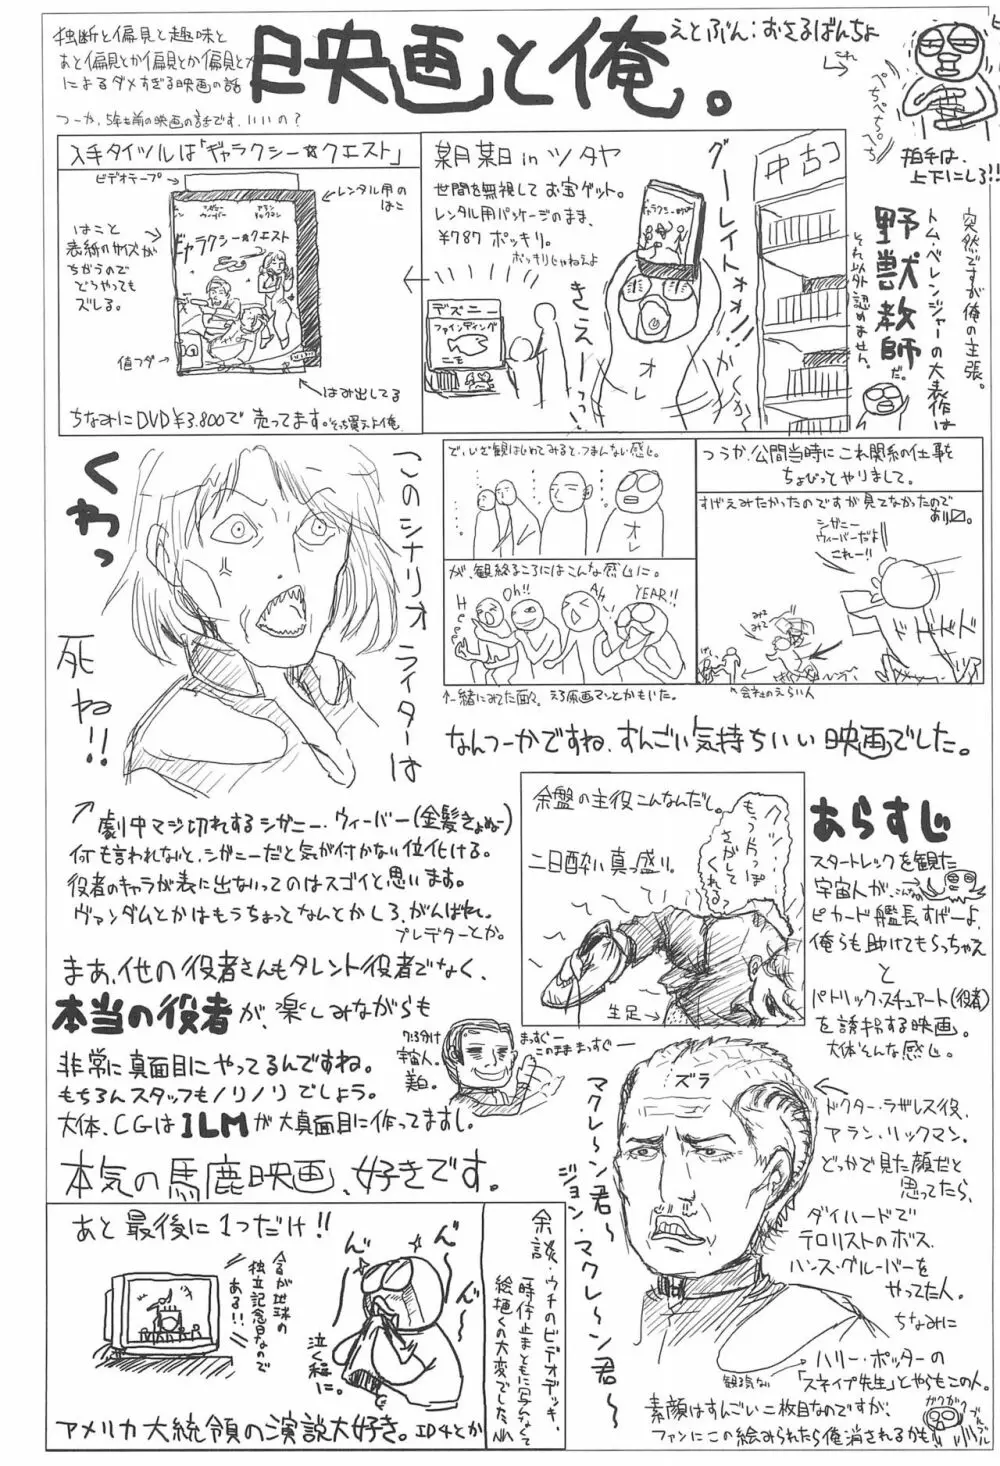 独断と偏見と趣味と
あと偏見とか偏見とか偏見とか
によるダメすぎる映画の話
つーか、5年も前の映画の話です、いいの?
映画と俺。
えとぶん:おさるばんちょ
これ
ぺちぺち。ぺち
拍手は、
上下にしろ!!
入手タイツルは「ギャラクシー☆クエスト」
ビデオテープ
レンタル用の
はこ
はこと
表紙のサイズが
ちがうので
どうやっても
ズレる。
シガニー
ウィーバー
アラン
リックマン
ギャラクシー☆クエスト
値フダ
はみ出してる
ちなみにDVD¥3.800で売ってます。そっち買えよ俺
某月某日inツタヤ
世間を無視してお宝ゲット。
レンタル用パッケージのまま、
¥787ポッキリ。
ポッキリじゃねえよ
グーレイトォォ!!
きえーーっっ
オレ
デズニー
ファインディング
ニモ
中古コ
突然ですが俺の主張。
トム・ベレンジャーの大表作は
野獣教師だ。
それ以外認めません。
このシナリオライターは
くわっ
死ね!!
で、いざ観はじめてみると、つまんない感じ。
オレ
が、観終るころにはこんな感じに。
Oh!!
Ah
YEAR!!
↑一緒にみてた面々。えろ原画マンとかもいた。
つうか、公開当時にこれ関係の仕事を
ちょびっとやりまして。
すげえみたかったのですが見てなかったので
シガニー
ウィーバーだよ
これー!!
みて
みて
ドドドド
↑会社のえらい人
なんつーかですね、すんごい気持ちいい映画でした。
↗劇中マジ切れするシガニー・ウィーバー(金髪きょぬー)
何も言われないと、シガニーだと気が付かない位化ける。
役者のキャラが表に出ないってのはスゴイと思います。
ヴァンダムとかはもうちょっとなんとかしろ、がんばれ。
プレデターとか。
まあ、他の役者さんもタレント役者でなく、
本当の役者が、楽しみながらも
非常に真面目にやってるんですね。
もちろんスタッフもノリノリでしょう。
大体、CGはILMが大真面目に作ってますし。
本気の馬鹿映画、好きです。
7:3分け
宇宙人。
美白。
まっすぐー
このまままっすぐー
余盤の主役こんなんだし。
二日酔い真っ盛り。
さがして
くれる?
生足→
あらすじ
スタートレックを観た
宇宙人が、
ピカード艦長すげーよ、
俺らも助けてもらっちゃえ
と
パトリック・スチュアート(役者)
を誘拐する映画。
大体そんな感じ。
ズラ
マクレ〜ン君〜
ジョン・マクレ〜ン君〜
ドクター・ラザレス役、
アラン・リックマン。
どっかで見た顔だと
思ってたら、
ダイハードで
テロリストのボス、
ハンス・グルーバーを
やってた人。
ちなみに
ハリー・ポッターの
「スネイプ先生」とやらもこの人。
観る気ない
素顔はすんごい二枚目なのですが、
ファンにこの絵みられたら俺消されるかも
ガクガク
ブルブル
あと最後に1つだけ!!
今日が地球の
独立記念日なので
ある!!
泣く程に。
アメリカ大統領の演説大好き。ID4とか
余談・ウチのビデオデッキ、
一時停止まともに写んなくて
絵描くの大変でした。